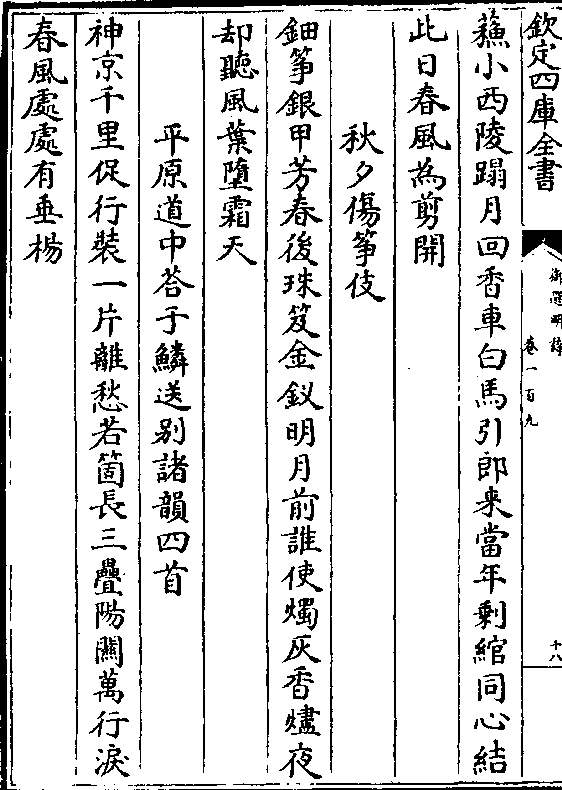 欽定四庫全書
御選明詩
卷一百九
十八
蘓小西陵蹋月回香車白馬引郎来當年剰綰同心結
此日春風為剪開
秋夕傷箏伎
鈿箏銀甲芳春後珠笈金釵明月前誰使燭灰香燼夜
却聽風葉墮霜天
平原道中荅于鱗送别諸韻四首
神京千里促行裝一片離愁若箇長三疊陽關萬行淚
春風處處有垂楊